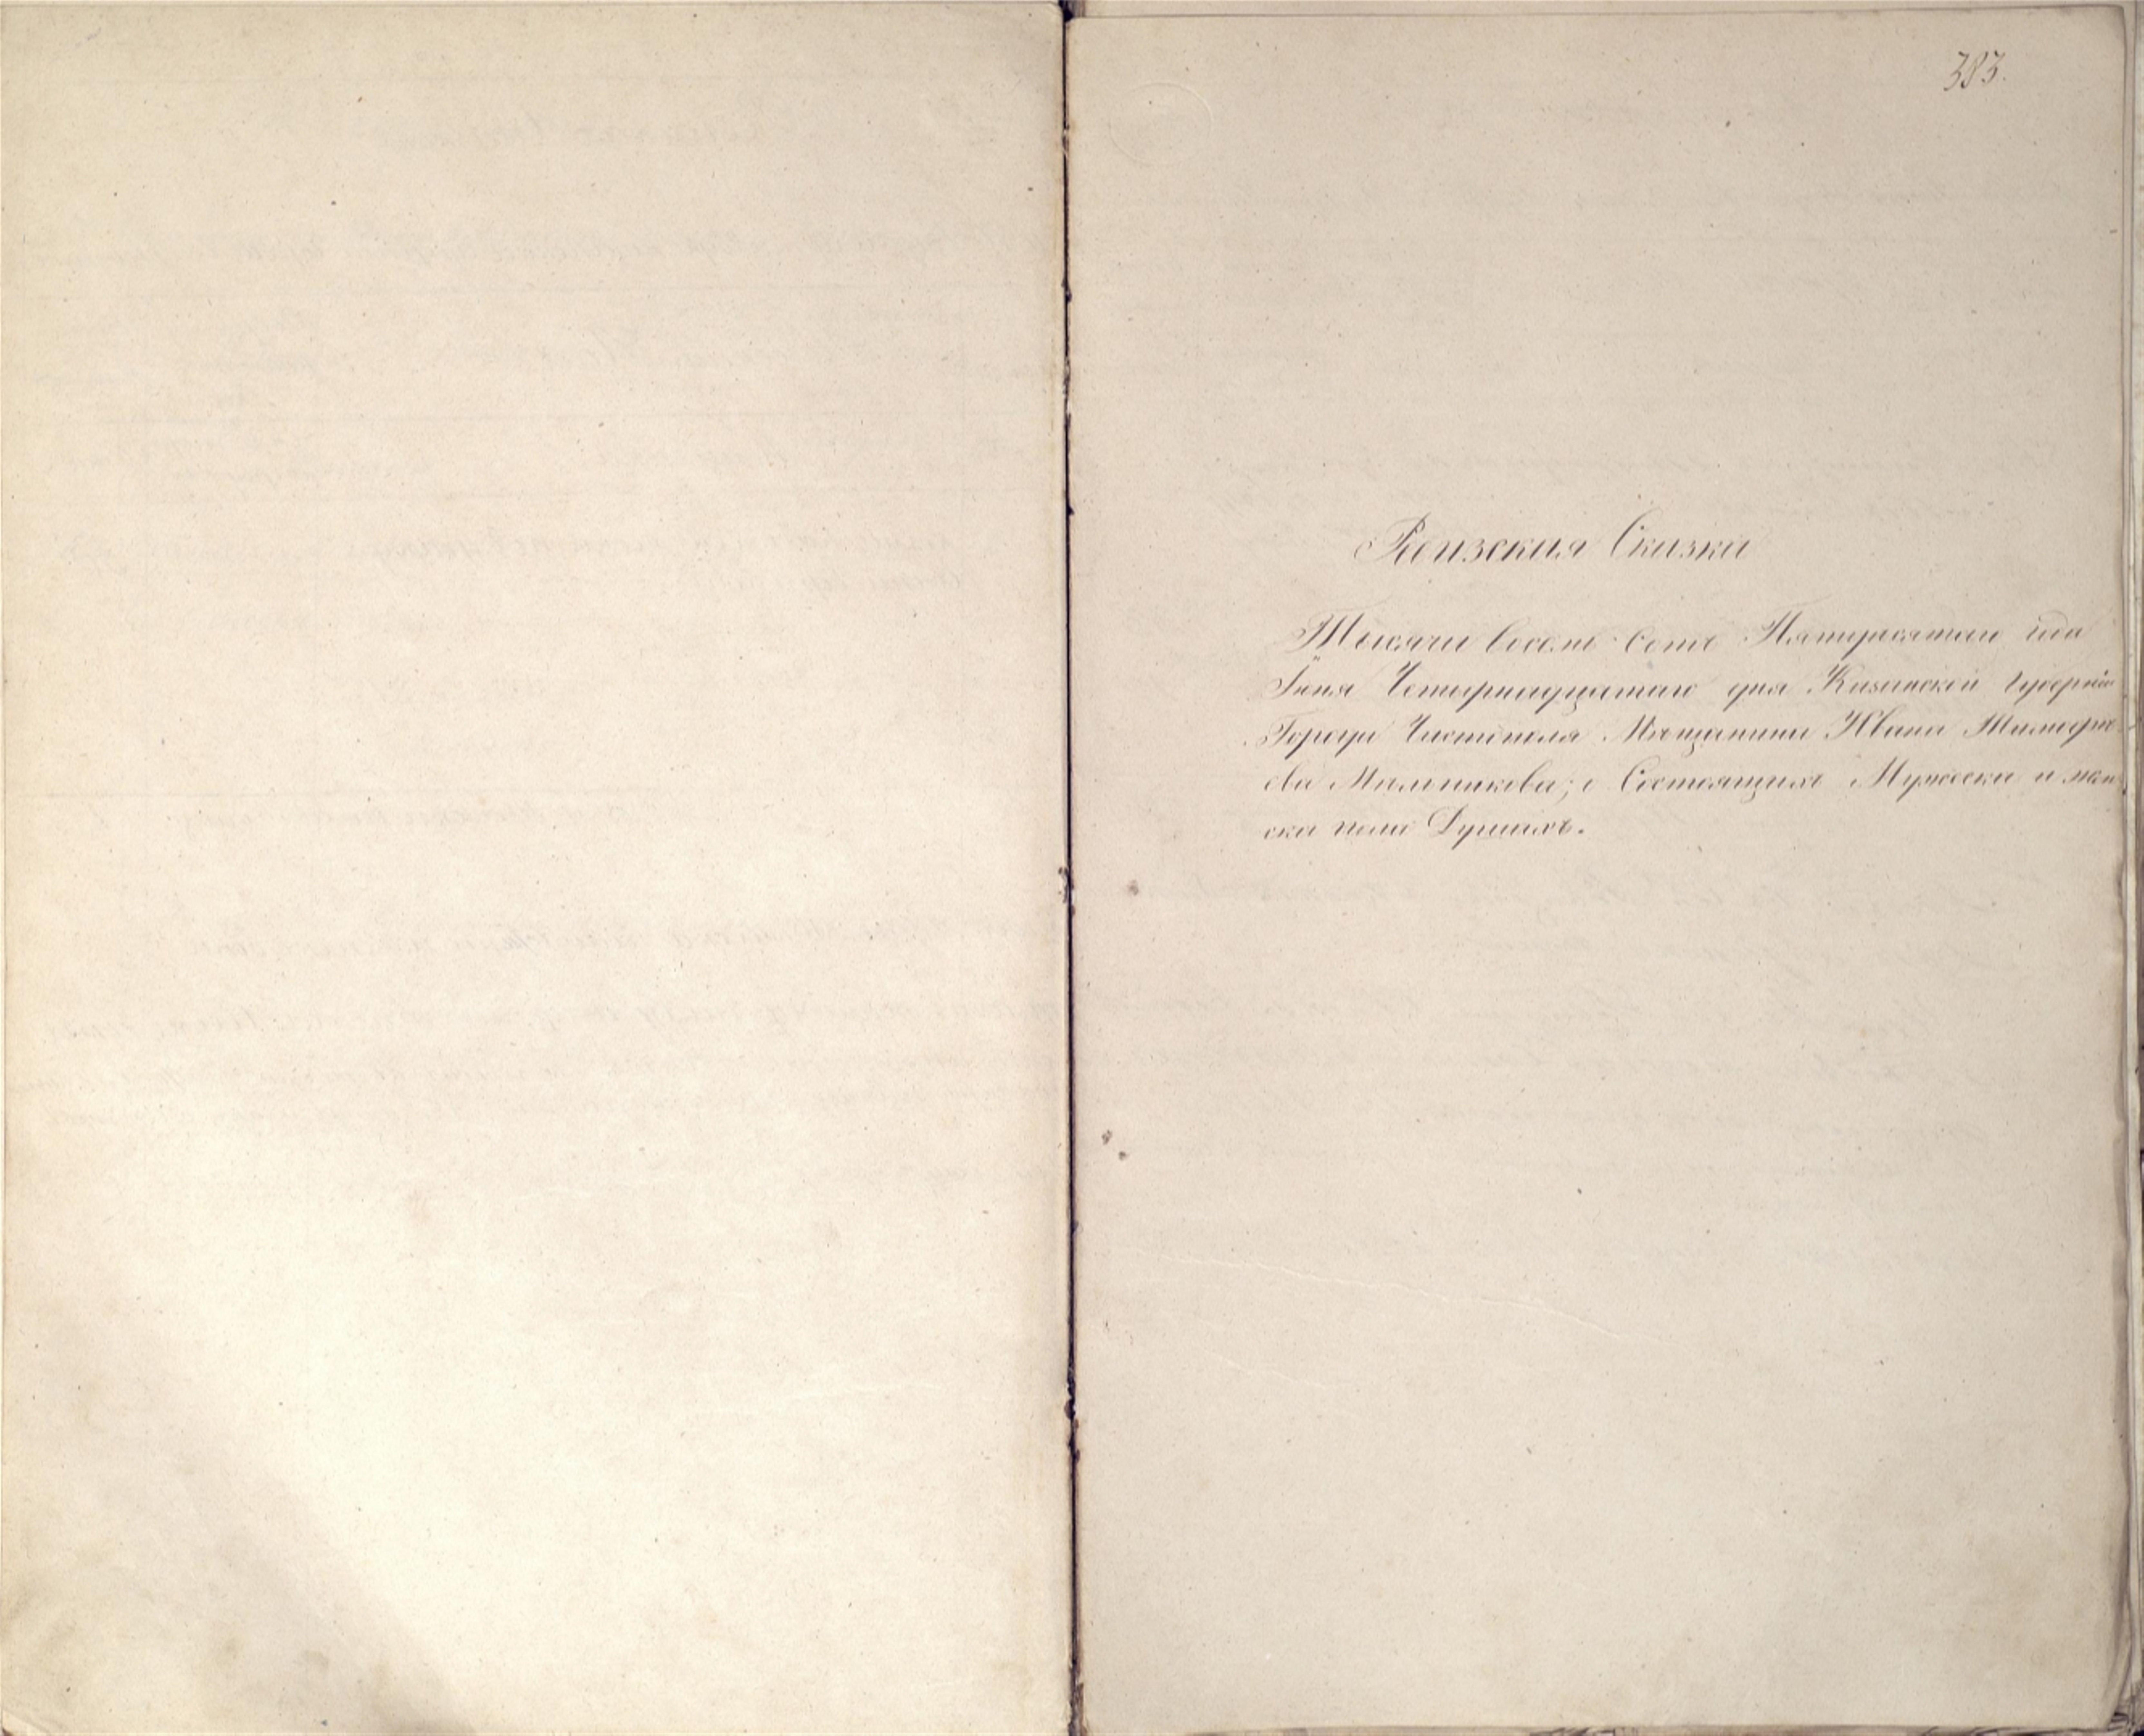 383.
Ревизския Сказки
Тысячи восемь сотъ Пятидесятаго года
Іюня Четырнадцатаго дня Казанской Губерніи
Города Чистополя Мещанина Ивана
ова Мальникова; о Состоящихъ Мужеска и жен
ска пола Душахъ.